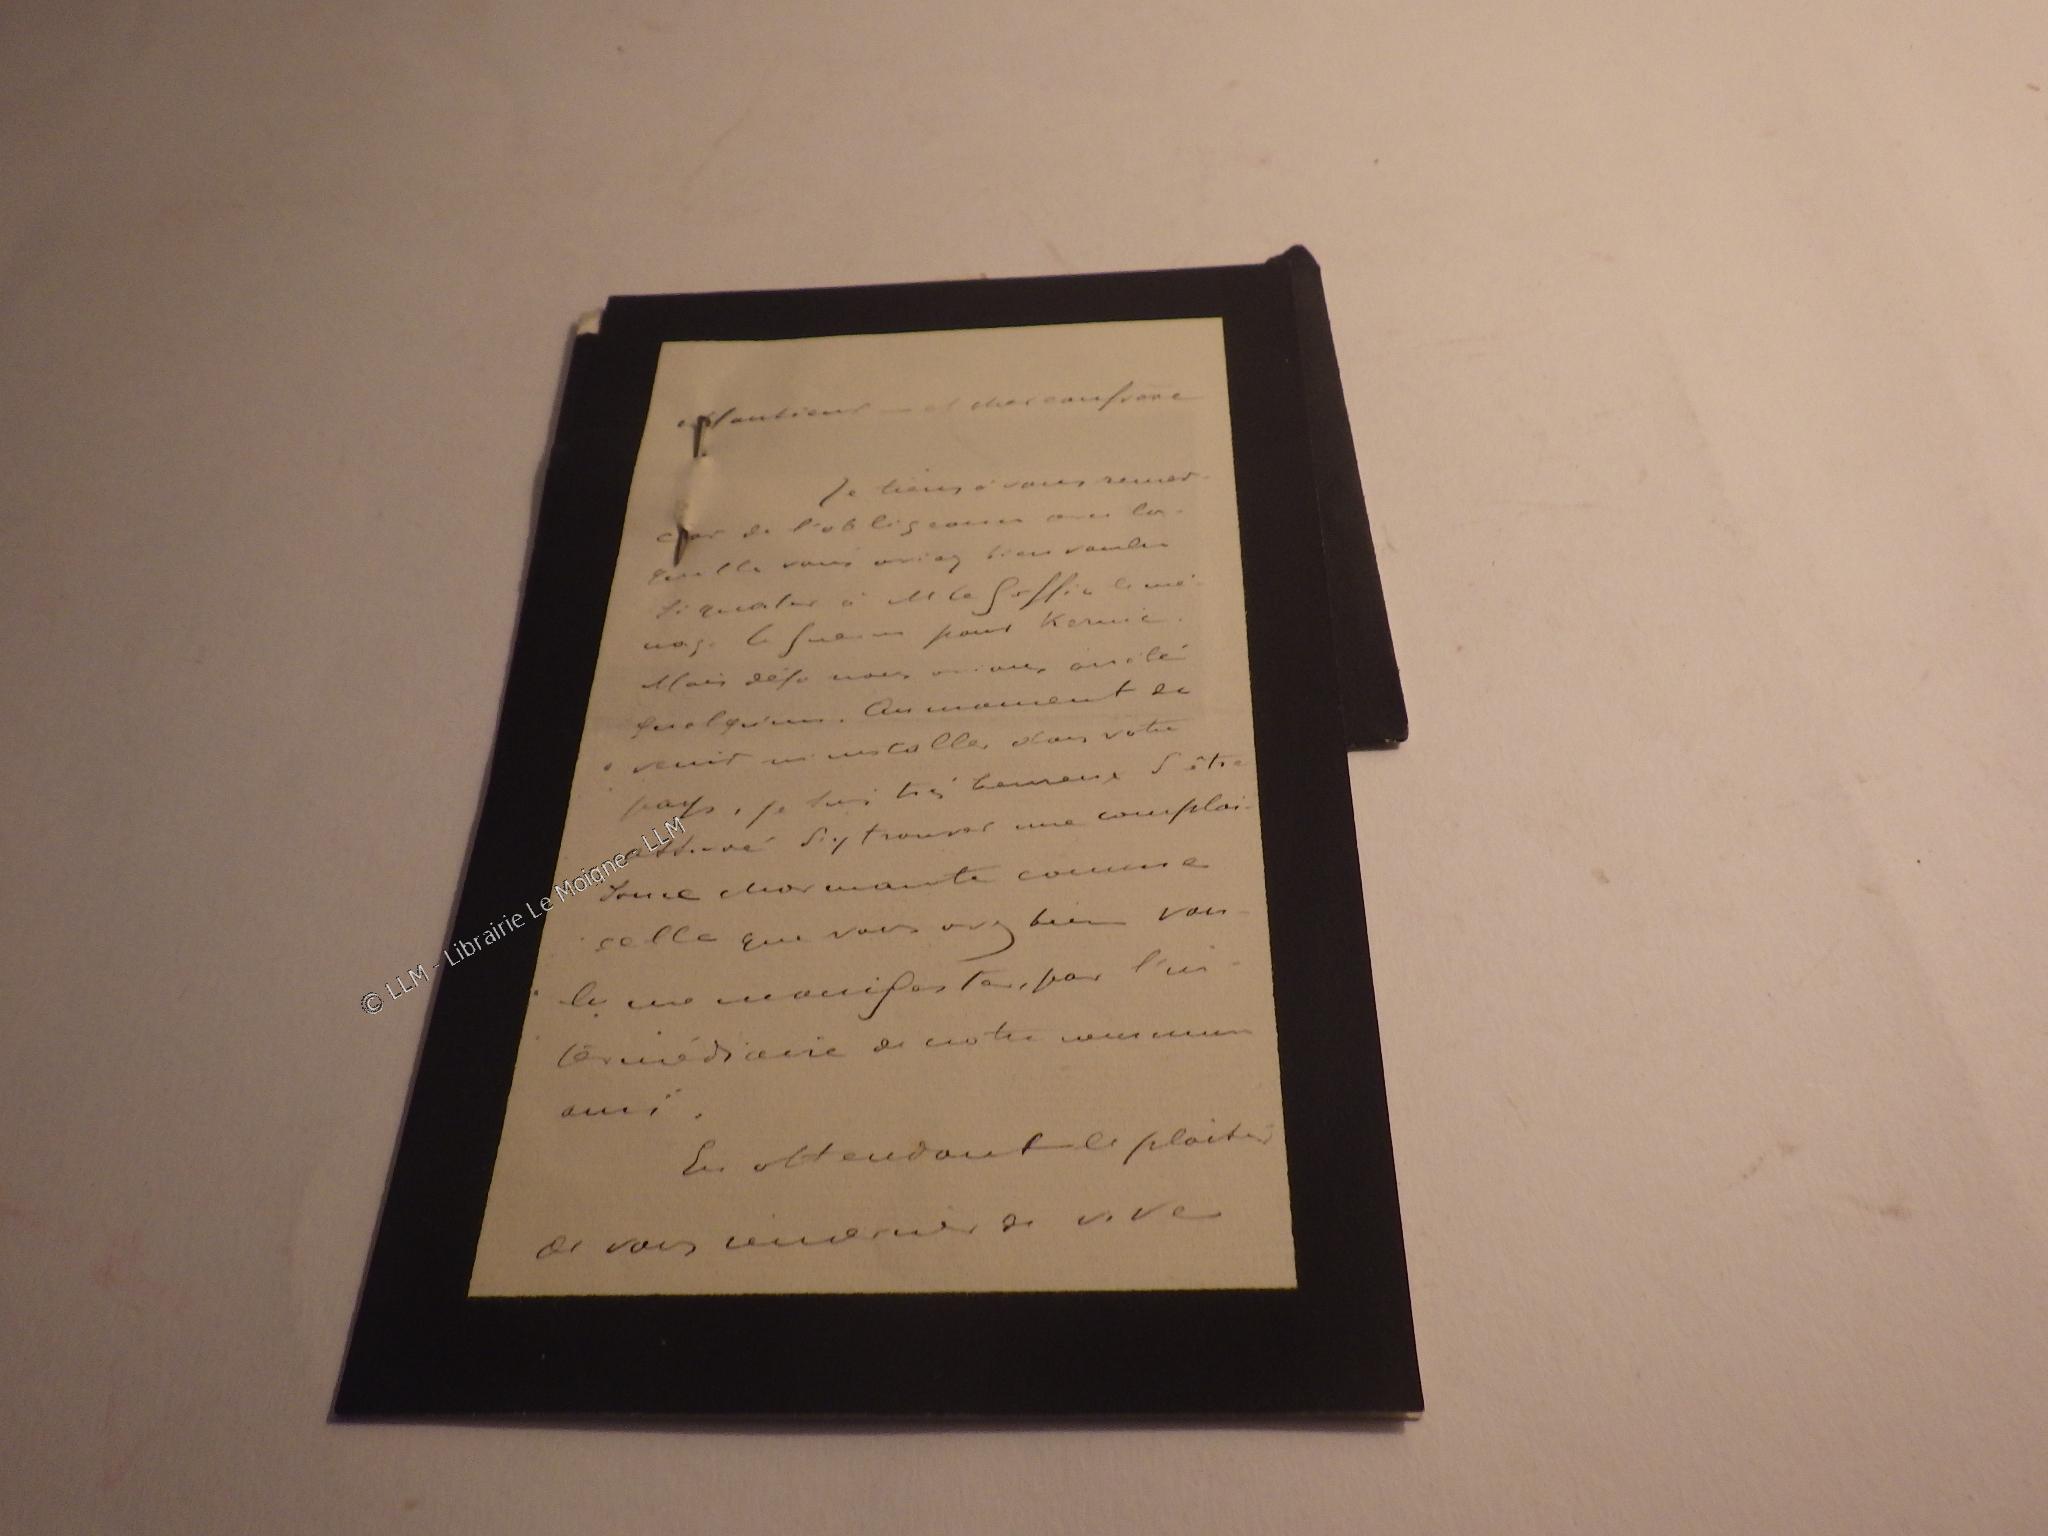 Monsieur et cher confrère
Je tiens à vous remer-
cier de l'obligeance avec la-
quelle vous aviez bien voulu
signaler à M Le Goffic le mé-
nage Le Guern pour Kernic.
Mais déjà nous avions arrêté
quelqu'un. Au moment de
venir m'installer dans votre
pays, je suis très heureux d'être
assuré d'y trouver une complai-
sance charmante comme
celle que vous avez bien vou-
lu me manifester, par l'in-
termédiaire de notre commun
ami.
En attendant le plaisir
de vous remercier de vive
© LLM - Librairie Le Moigne - LLM